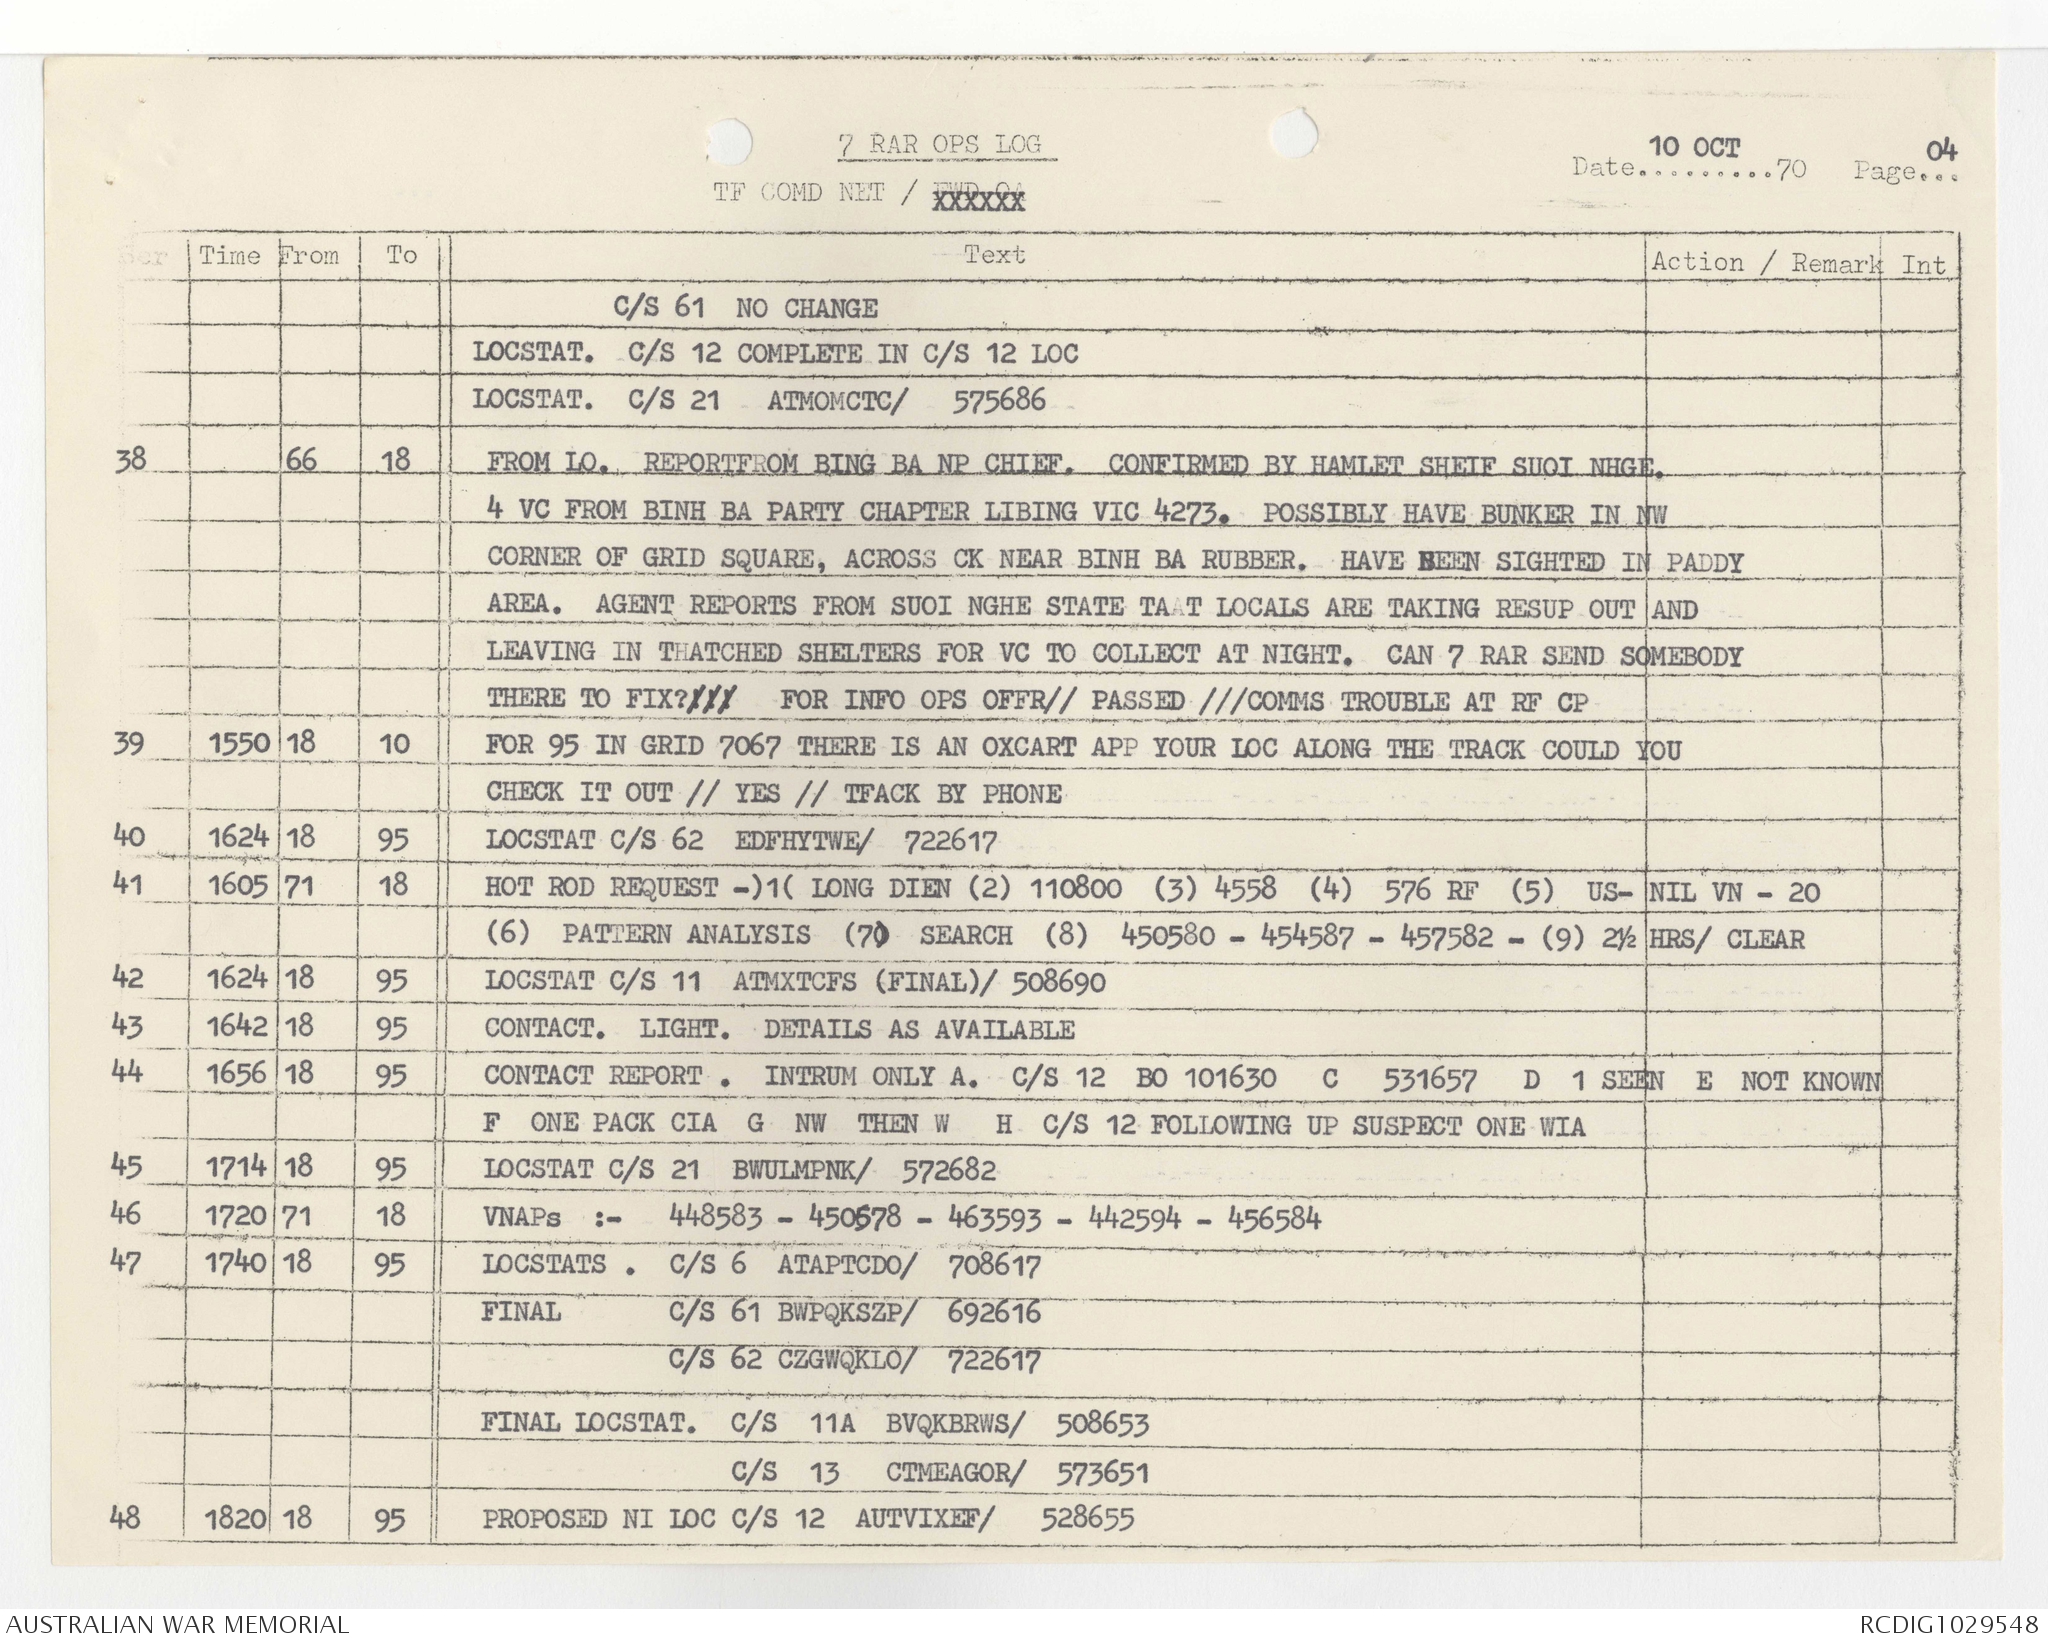 7 RAR OPS LOG
TF COMD NET / XXXXXX
Date 10 OCT 70 Page 04
Ser Time From To Text Action / Remark Int
C/S 61 NO CHANGE
LOCSTAT. C/S 12 COMPLETE IN C/S 12 LOC
LOCSTAT. C/S 21 ATMOMCTC/ 575686
38 66 18 FROM LO. REPORTFROM BING BA NP CHIEF. CONFIRMED BY HAMLET SHEIF SUOI NHGE.
4 VC FROM BINH BA PARTY CHAPTER LIBING VIC 4273. POSSIBLY HAVE BUNKER IN NW
CORNER OF GRID SQUARE, ACROSS CK NEAR BINH BA RUBBER. HAVE BEEN SIGHTED IN PADDY
AREA. AGENT REPORTS FROM SUOI NGHE STATE TAAT LOCALS ARE TAKING RESUP OUT AND
LEAVING IN THATCHED SHELTERS FOR VC TO COLLECT AT NIGHT. CAN 7 RAR SEND SOMEBODY
THERE TO FIX?/// FOR INFO OPS OFFR// PASSED ///COMMS TROUBLE AT RF CP
39 1550 18 10 FOR 95 IN GRID 7067 THERE IS AN OXCART APP YOUR LOC ALONG THE TRACK COULD YOU
CHECK IT OUT // YES // TFACK BY PHONE
40 1624 18 95 LOCSTAT C/S 62 EDFHYTWE/ 722617
41 1605 71 18 HOT ROD REQUEST -)1( LONG DIEN (2) 110800 (3) 4558 (4) 576 RF (5) US- NIL VN - 20
(6) PATTERN ANALYSIS (7) SEARCH (8) 450580 - 454587 - 457582 - (9) 2½ HRS/ CLEAR
42 1624 18 95 LOCSTAT C/S 11 ATMXTCFS (FINAL)/ 508690
43 1642 18 95 CONTACT. LIGHT. DETAILS AS AVAILABLE
44 1656 18 95 CONTACT REPORT . INTRUM ONLY A. C/S 12 BO 101630 C 531657 D 1 SEEN E NOT KNOWN
F ONE PACK CIA G NW THEN W H C/S 12 FOLLOWING UP SUSPECT ONE WIA
45 1714 18 95 LOCSTAT C/S 21 BWULMPNK/ 572682
46 1720 71 18 VNAPs :- 448583 - 450578 - 463593 - 442594 - 456584
47 1740 18 95 LOCSTATS . C/S 6 ATAPTCDO/ 708617
FINAL C/S 61 BWPQKSZP/ 692616
C/S 62 CZGWQKLO/ 722617
FINAL LOCSTAT. C/S 11A BVQKBRWS/ 508653
C/S 13 CTMEAGOR/ 573651
48 1820 18 95 PROPOSED NI LOC C/S 12 AUTVIXEF/ 528655
AUSTRALIAN WAR MEMORIAL RCDIG1029548